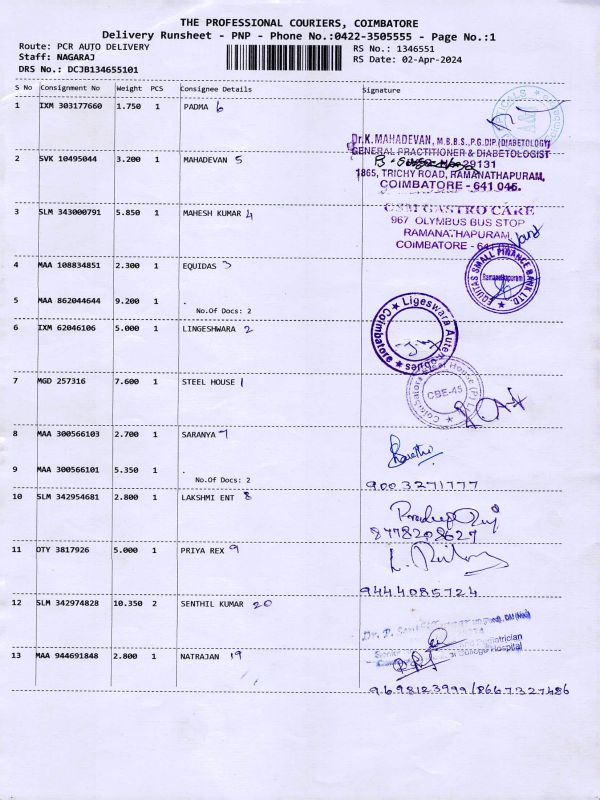 THE PROFESSIONAL COURIERS, COIMBATORE
Delivery Runsheet - PNP - Phone No.:0422-3505555 - Page No.:1
Route: PCR AUTO DELIVERY
RS No.: 1346551
Staff: NAGARAJ
RS Date: 02-Apr-2024
DRS No.: DCJB134655101
S No Consignment No Weight PCS Consignee Details Signature
1 IXM 303177660 1.750 1 PADMA 6
Dr.K. MAHADEVAN, M.B.B.S.,P.G.DIP (DIABETOLOGY)
GENERAL PRACTITIONER & DIABETOLOGIST
2 SVK 10495044 3.200 1 MAHADEVAN 5
29131
1865, TRICHY ROAD, RAMANATHAPURAM,
COIMBATORE - 641 045.
3 SLM 343000791 5.850 1 MAHESH KUMAR 4
GSM GASTRO CARE
967 OLYMBUS BUS STOP
RAMANATHAPURAM
COIMBATORE - 641
4 MAA 108834851 2.300 1 EQUIDAS 3
EQUITAS SMALL FINANCE BANK LTD.
Ramanathapuram
5 MAA 862044644 9.200 1 .
No.Of Docs: 2
6 IXM 62046106 5.000 1 LINGESHWARA 2
Ligeswara Auto
Coimbatore
7 MGD 257316 7.600 1 STEEL HOUSE 1
CBE-45
8 MAA 300566103 2.700 1 SARANYA 7
9 MAA 300566101 5.350 1 .
No.Of Docs: 2
9003271777
10 SLM 342954681 2.800 1 LAKSHMI ENT 8
8778208627
11 OTY 3817926 5.000 1 PRIYA REX 9
9444085724
12 SLM 342974828 10.350 2 SENTHIL KUMAR 20
13 MAA 944691848 2.800 1 NATRAJAN 19
9698123999/8667327486